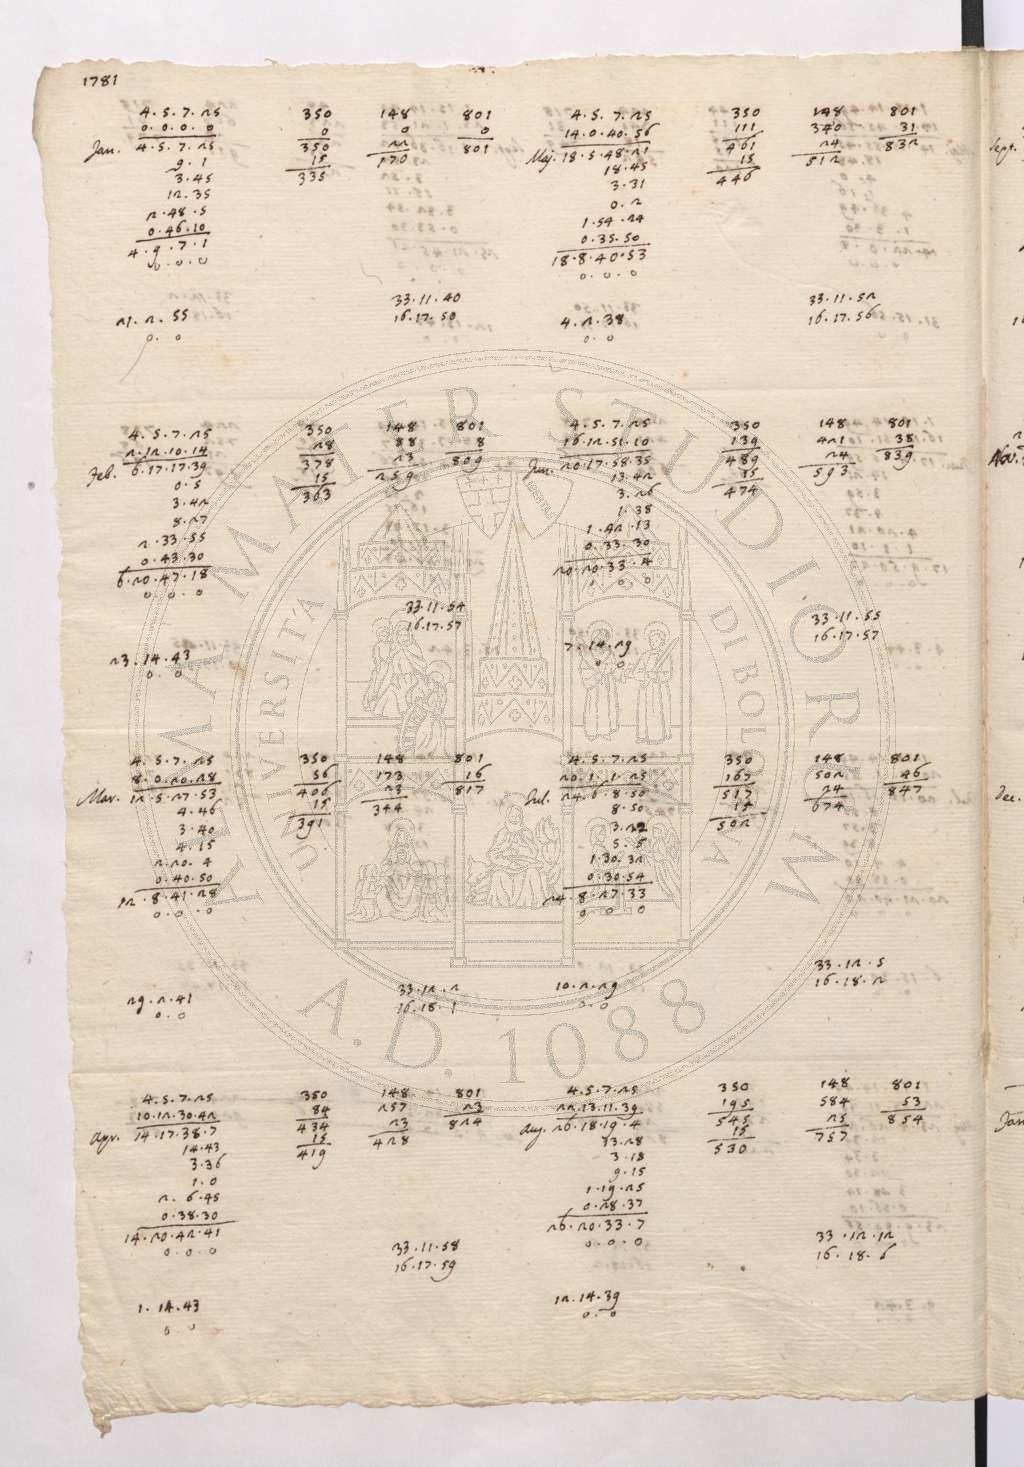 1781
4.5.7.25 350 148 801
0.0.0.0 0 0 0
Jan. 4.5.7.25 350 22 801
9.1 15 170
3.45 335
12.35
2.48.5
0.46.10
4.9.7.1
0.0.0
33.11.40
21.2.55 16.17.50
0.0
4.5.7.25 350 148 801
2.12.10.14 28 88 8
Feb. 6.17.17.39 378 23 809
0.5 15 259
3.42 363
8.27
2.33.55
0.43.30
6.20.47.18
0.0.0
33.11.54
16.17.57
23.14.43
0.0
4.5.7.25 350 148 801
8.0.20.28 56 173 16
Mar. 12.5.27.53 406 23 817
4.46 15 344
3.40 391
4.15
2.20.4
0.40.50
12.8.41.28
0.0.0
33.12.2
29.2.41 16.18.1
0.0
4.5.7.25 350 148 801
10.12.30.42 84 257 23
Apr. 14.17.38.7 434 23 824
14.43 15 428
3.36 419
1.0
2.6.45
0.38.30
14.20.42.41
0.0.0
33.11.58
16.17.59
1.14.43
0.0
4.5.7.25 350 148 801
14.0.40.56 111 340 31
Maj. 18.5.48.21 461 24 832
18.45 15 512
3.31 446
0.2
1.54.24
0.35.50
18.8.40.53
0.0.0
33.11.52
4.2.38 16.17.56
0.0
4.5.7.25 350 148 801
16.12.51.10 139 421 38
Jun. 20.17.58.35 489 24 839
13.42 15 593
3.26 474
1.38
1.42.13
0.33.30
20.20.33.4
0.0.0
33.11.55
16.17.57
7.14.29
0.0
4.5.7.25 350 148 801
20.1.1.25 167 502 46
Jul. 24.6.8.50 517 24 847
8.50 15 674
3.22 502
5.5
1.30.32
0.30.54
24.8.27.33
0.0.0
33.12.5
10.2.29 16.18.2
0.0
4.5.7.25 350 148 801
22.13.11.39 195 584 53
Aug. 26.18.19.4 545 25 854
13.28 15 757
3.18 530
9.15
1.19.25
0.28.37
26.20.33.7
0.0.0
33.12.12
16.18.6
12.14.39
0.0
Sept.
Nov.
Dec.
Jan
ALMA MATER STUDIORUM
UNIVERSITÀ DI BOLOGNA
LIBERTAS
A.D. 1088